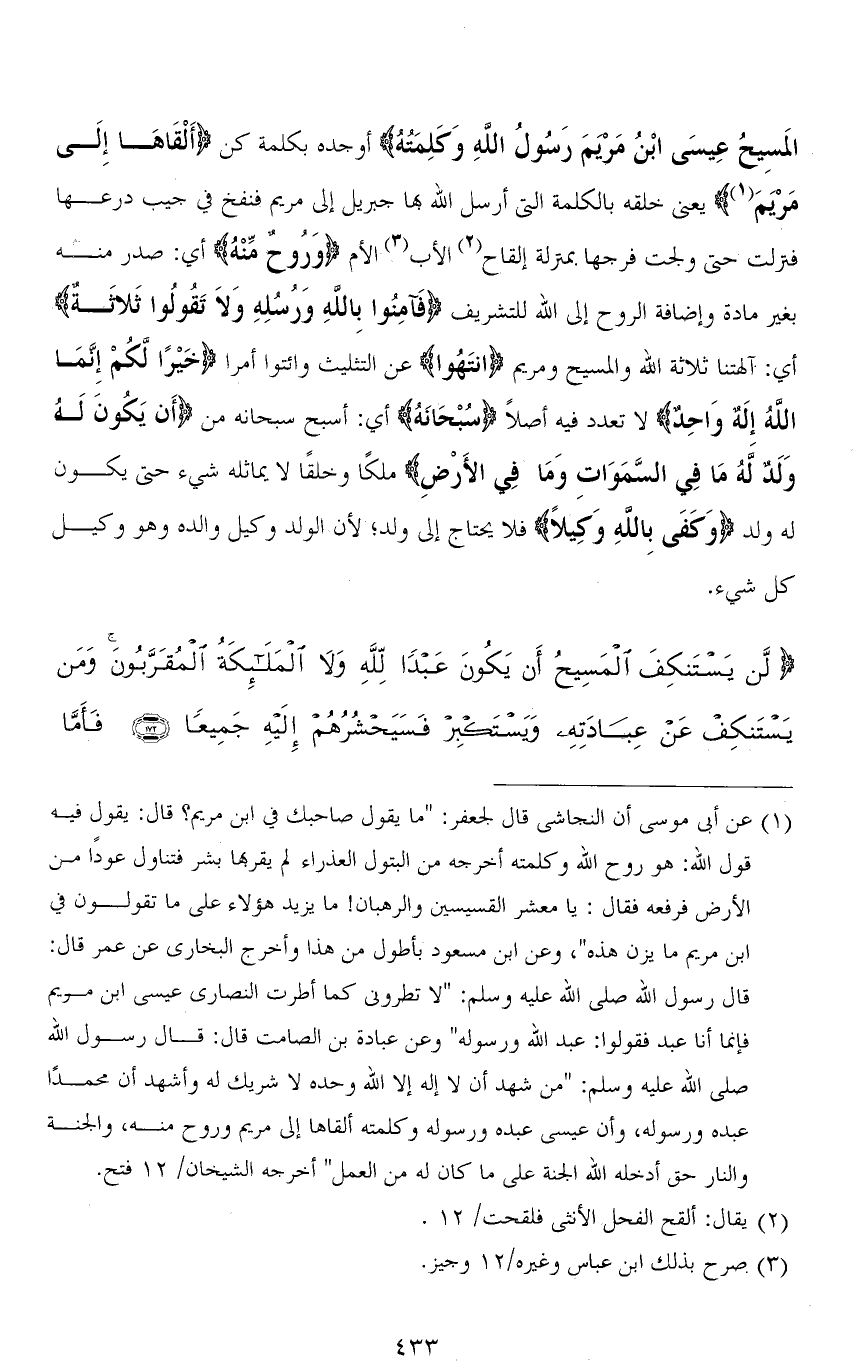 المَسِيحُ عِيسَى ابْنُ مَرْيَمَ رَسُولُ اللَّهِ وَكَلِمَتُهُ﴾ أوجده بكلمة كن ﴿أَلْقَاهَا إِلَى
مَرْيَمَ(١)﴾ يعنى خلقه بالكلمة التى أرسل الله بها جبريل إلى مريم فنفخ في جيب درعها
فنزلت حتى ولجت فرجها بمنزلة إلقاح(٢) الأب(٣) الأم ﴿وَرُوحٌ مِّنْهُ﴾ أي: صدر منه
بغير مادة وإضافة الروح إلى الله للتشريف ﴿فَآمِنُوا بِاللَّهِ وَرُسُلِهِ وَلاَ تَقُولُوا ثَلاثَةٌ﴾
أي: آلهتنا ثلاثة الله والمسيح ومريم ﴿انتَهُوا﴾ عن التثليث وائتوا أمرا ﴿خَيْرًا لَّكُمْ إِنَّمَا
اللَّهُ إِلَهٌ وَاحِدٌ﴾ لا تعدد فيه أصلاً ﴿سُبْحَانَهُ﴾ أي: أسبح سبحانه من ﴿أَن يَكُونَ لَهُ
وَلَدٌ لَّهُ مَا فِي السَّمَوَاتِ وَمَا فِي الأَرْضِ﴾ ملكًا وخلقًا لا يماثله شيء حتى يكون
له ولد ﴿وَكَفَى بِاللَّهِ وَكِيلاً﴾ فلا يحتاج إلى ولد؛ لأن الولد وكيل والده وهو وكيل
كل شيء.
﴿ لَّن يَسْتَنكِفَ ٱلْمَسِيحُ أَن يَكُونَ عَبْدًا لِّلَّهِ وَلَا ٱلْمَلَٰٓئِكَةُ ٱلْمُقَرَّبُونَ ۚ وَمَن
يَسْتَنكِفْ عَنْ عِبَادَتِهِۦ وَيَسْتَكْبِرْ فَسَيَحْشُرُهُمْ إِلَيْهِ جَمِيعًا ١٧٢ فَأَمَّا
(١) عن أبى موسى أن النجاشى قال لجعفر: "ما يقول صاحبك في ابن مريم؟ قال: يقول فيه
قول الله: هو روح الله وكلمته أخرجه من البتول العذراء لم يقربها بشر فتناول عودًا من
الأرض فرفعه فقال : يا معشر القسيسين والرهبان! ما يزيد هؤلاء على ما تقولون في
ابن مريم ما يزن هذه"، وعن ابن مسعود بأطول من هذا وأخرج البخارى عن عمر قال:
قال رسول الله صلى الله عليه وسلم: "لا تطرونى كما أطرت النصارى عيسى ابن مريم
فإنما أنا عبد فقولوا: عبد الله ورسوله" وعن عبادة بن الصامت قال: قال رسول الله
صلى الله عليه وسلم: "من شهد أن لا إله إلا الله وحده لا شريك له وأشهد أن محمدًا
عبده ورسوله، وأن عيسى عبده ورسوله وكلمته ألقاها إلى مريم وروح منه، والجنة
والنار حق أدخله الله الجنة على ما كان له من العمل" أخرجه الشيخان/ ١٢ فتح.
(٢) يقال: ألقح الفحل الأنثى فلقحت/ ١٢ .
(٣) صرح بذلك ابن عباس وغيره/١٢ وجيز.
٤٣٣